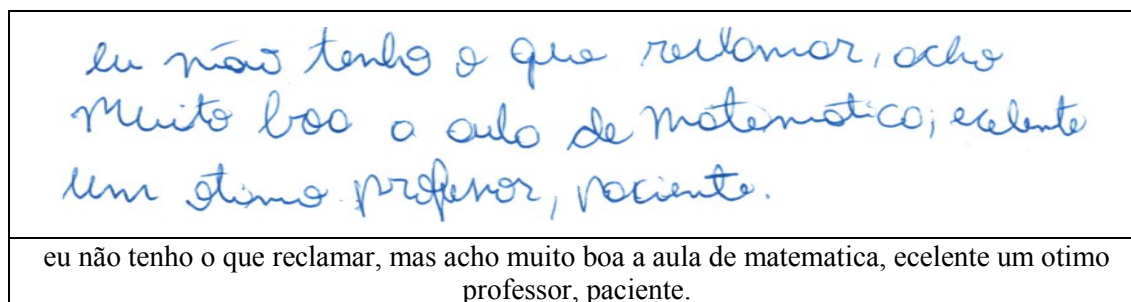 eu não tenho o que reclamar, acho
muito boa a aula de matematica; ecelente
um otimo professor, paciente.
eu não tenho o que reclamar, mas acho muito boa a aula de matematica, ecelente um otimo
professor, paciente.